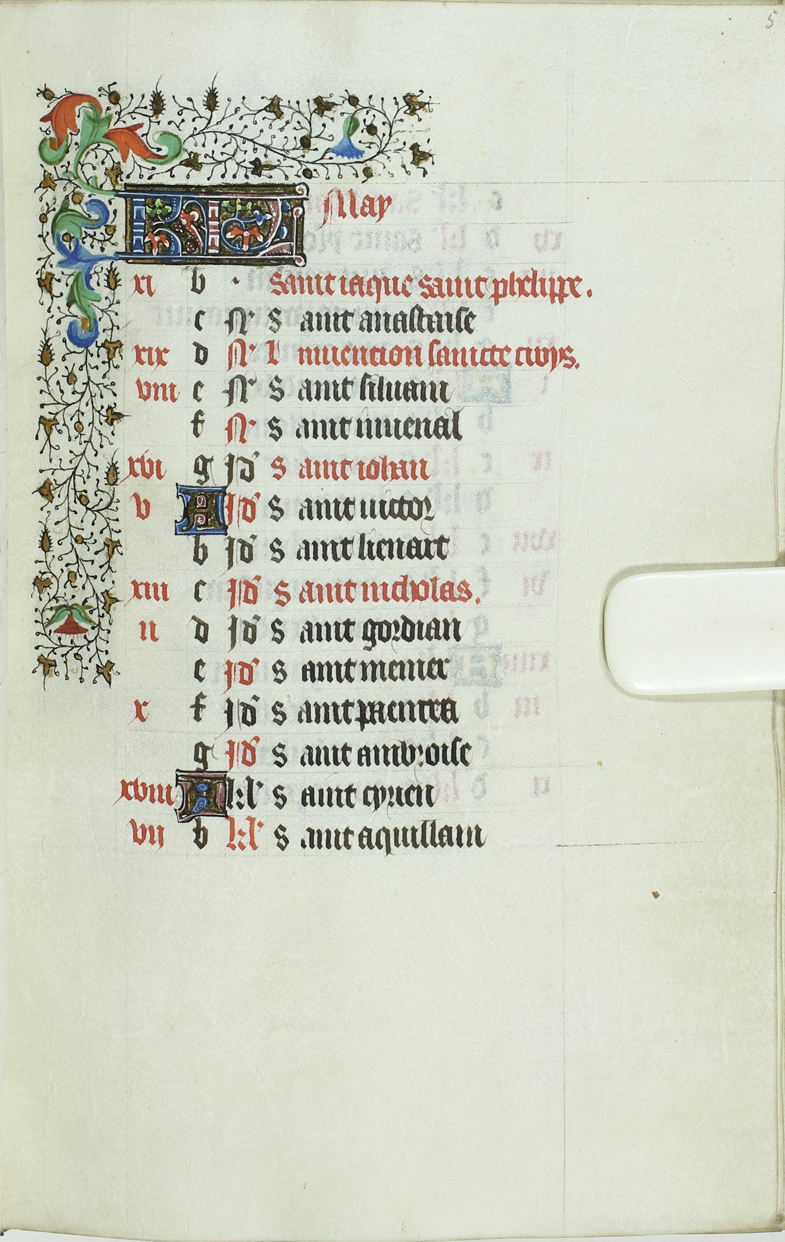 5
KL May
xi b · Saint iaque saint phelippe.
c N' S aint anastaise
xix d N' I nuention saincte croys.
viii e N' S aint siluain
f N' S aint iuuenal
xvi g Id' S aint iohan
v A Id' S aint uictor
b Id' S aint lienart
xiii c Id' S aint nicholas.
ii d Id' S aint gordian
e Id' S aint memer
x f Id' S aint
g Id' S aint ambroise
xviii A kl' S aint cyrien
vii b kl' S aint aquillain